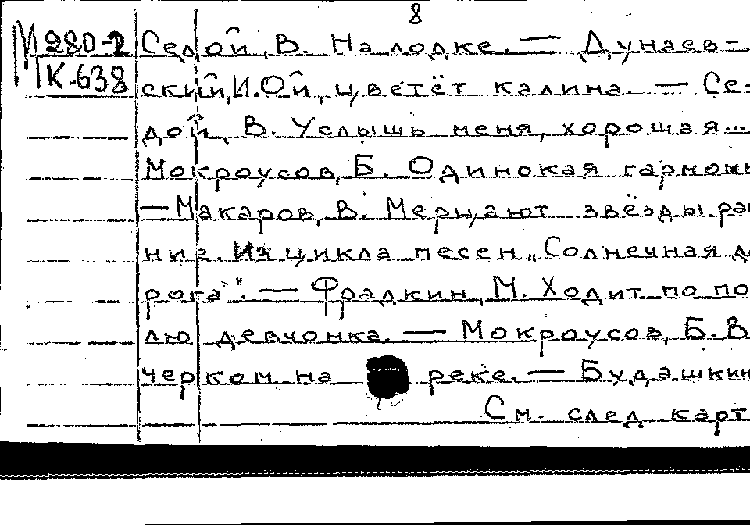 8
М280-2 Седой, В. На лодке. — Дунаев-
МК-638 ский, И. Ой, цветёт калина. — Се-
дой, В. Услышь меня, хорошая...
Мокроусов, Б. Одинокая гармонь
— Макаров, В. Мерцают звёзды ран
ние. Из цикла песен „Солнечная до
рога". — Фрадкин, М. Ходит по по
лю девчонка. — Мокроусов, Б. В
черком на реке. — Будашкин
См. след карт